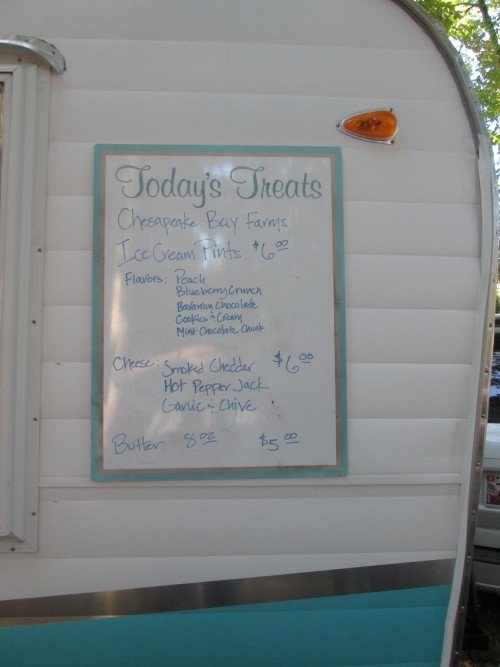 Today's Treats
Chesapeake Bay Farms
Ice Cream Pints $6.00
Flavors: Peach
Blueberry Crunch
Bavarian Chocolate
Cookies & Cream
Mint Chocolate Chunk
Cheese: Smoked Cheddar $6.00
Hot Pepper Jack
Garlic & Chive
Butter 8 oz $5.00